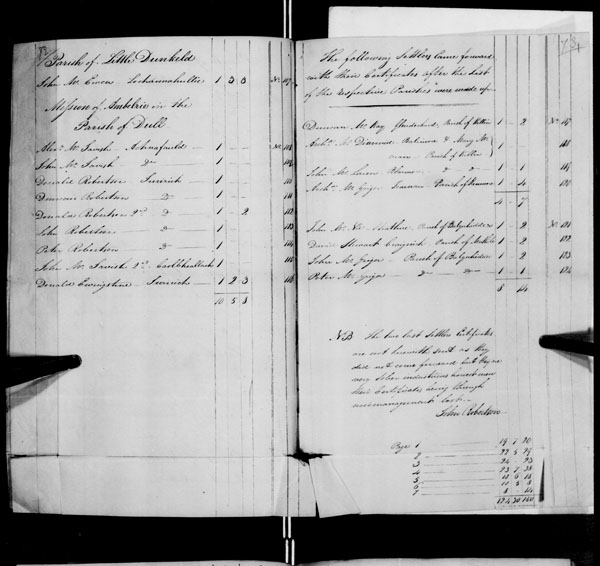 Parish of Little Dunkeld
John Mc Ewen Lochannahullie 1 3 3 No. 107
Mission of Ambelrie in the
Parish of Dull
Alexr. Mc Tavish 1 No. 108
John Mc Tavish Do 1 109
Donald Robertson Fincrich 1 110
Duncan Robertson Do 1 111
Donald Robertson 2nd Do 1 2 112
John Robertson Do 1 113
Peter Robertson Do 1 114
John Mc Tavish 2nd 1 115
Donald Livingstone Fincrich 1 2 3 116
10 5 8
The following Settlers Came forward
with their Certificates after the List
of the respective Parishes were made up
Duncan Mc Kay Parish of Killin 1 2 No. 117
Archd. Mc Diarmid & Mary Mc
Parish of Killin 1 118
John Mc Laren Do Do 1 1 119
Archd. Mc Grigor Parish of 1 4 120
4 7
John Mc Parish of Balquhidder 1 2 No. 121
David Stewart Parish of 1 2 122
John Mc Grigor Parish of Balquhidder 1 2 123
Peter Mc Grigor Do Do 1 1 124
8 14
NB The two last Settlers Certificates
are not herewith sent as they
did not come forward but they are
very sober industrious honest men
their Certificates being through
mismanagement lost
John Robertson
Page 1 19 7 20
2 22 5 29
3 24 23
4 23 7 38
5 18 6 18
6 10 5 8
7 8 14
124 30 140